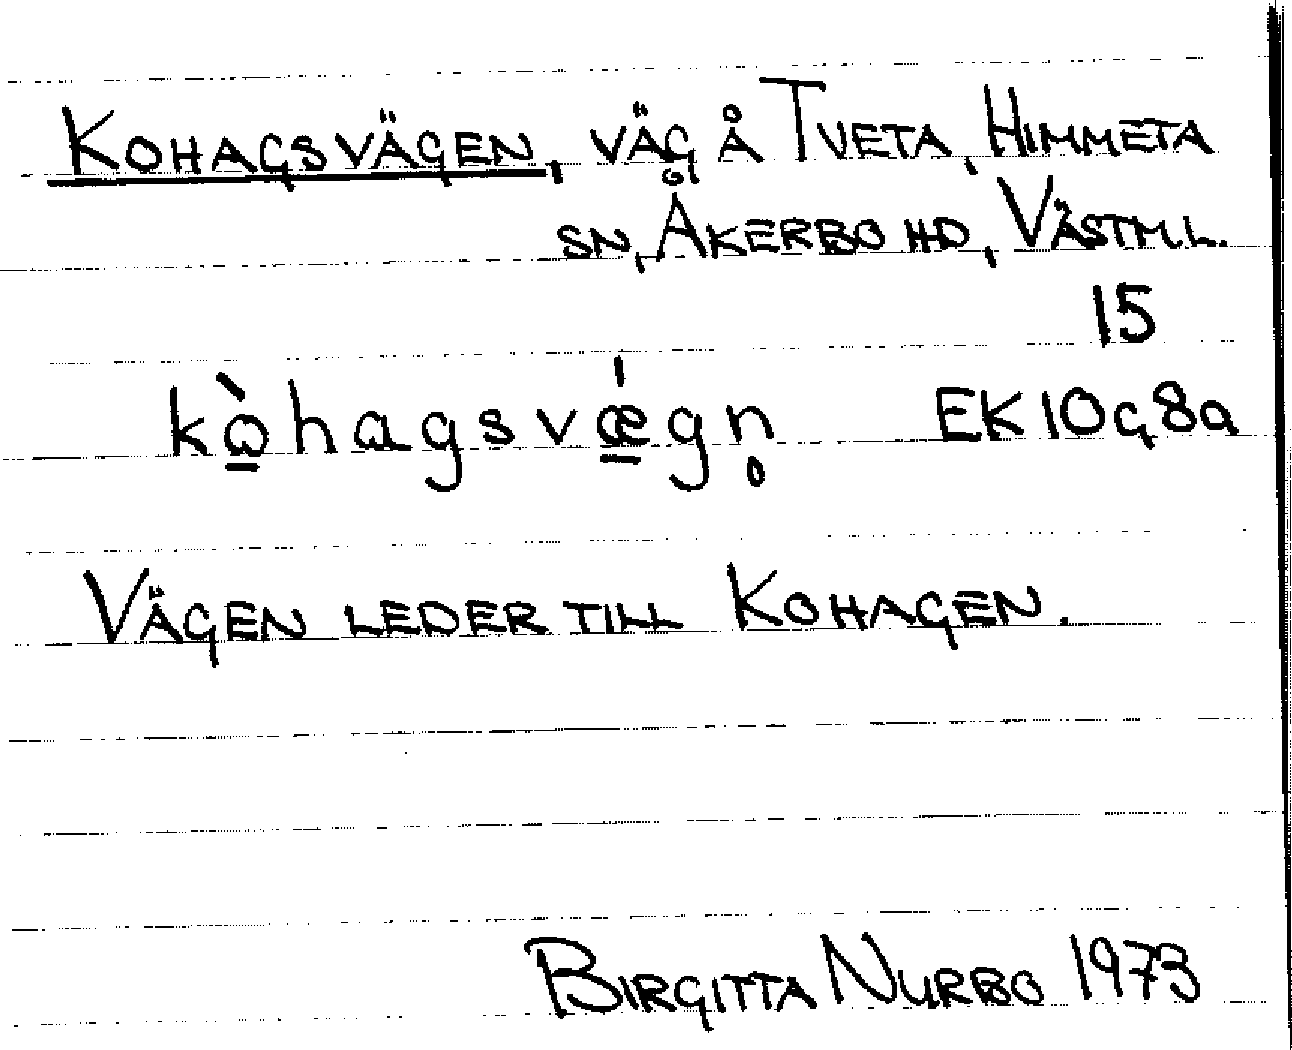 KOHAGSVÄGEN, VÄG Å TVETA, HIMMETA
SN, ÅKERBO HD, VÄSTML.
15
kò̲hagsvǽ̲gn̥ EK10G8a
VÄGEN LEDER TILL KOHAGEN.
BIRGITTA NURBO 1973